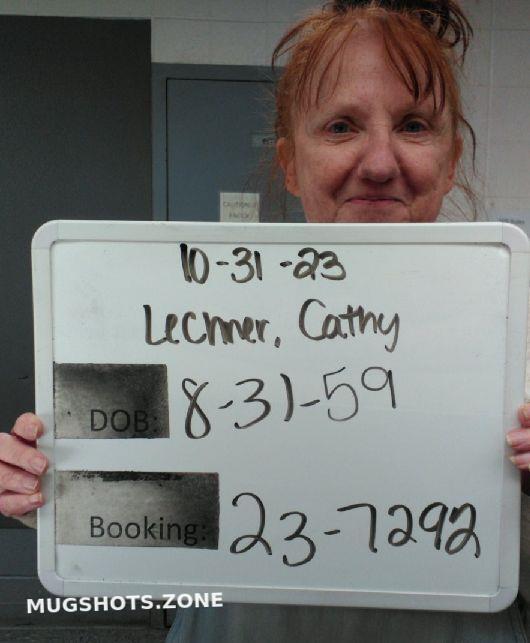 10-31-23
Lechner, Cathy
DOB: 8-31-59
Booking: 23-7292
MUGSHOTS.ZONE